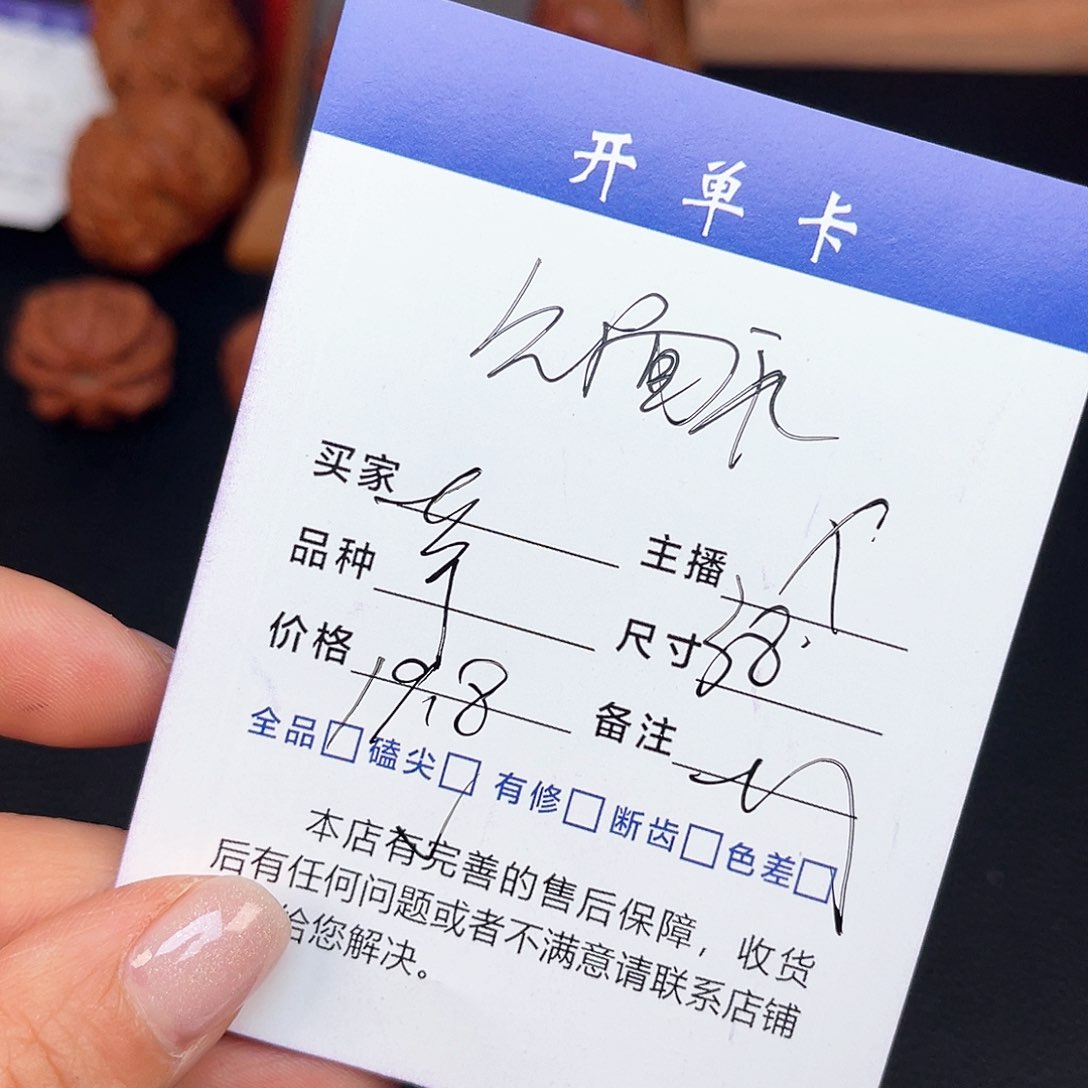 开单卡
买家 主播
品种 尺寸 38.
价格 19.8 备注
全品□ 磕尖□ 有修□ 断齿□ 色差□
本店有完善的售后保障，收货
后有任何问题或者不满意请联系店铺
给您解决。